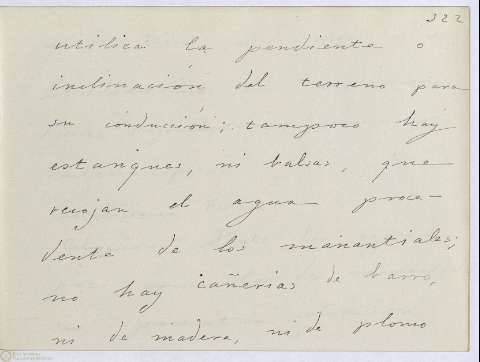 322
utiliza la pendiente o
inclinación del terreno para
su conducción; tampoco hay
estanques, ni balsas, que
recojan el agua proce-
dente de los manantiales;
no hay cañerías de barro,
ni de madera, ni de plomo